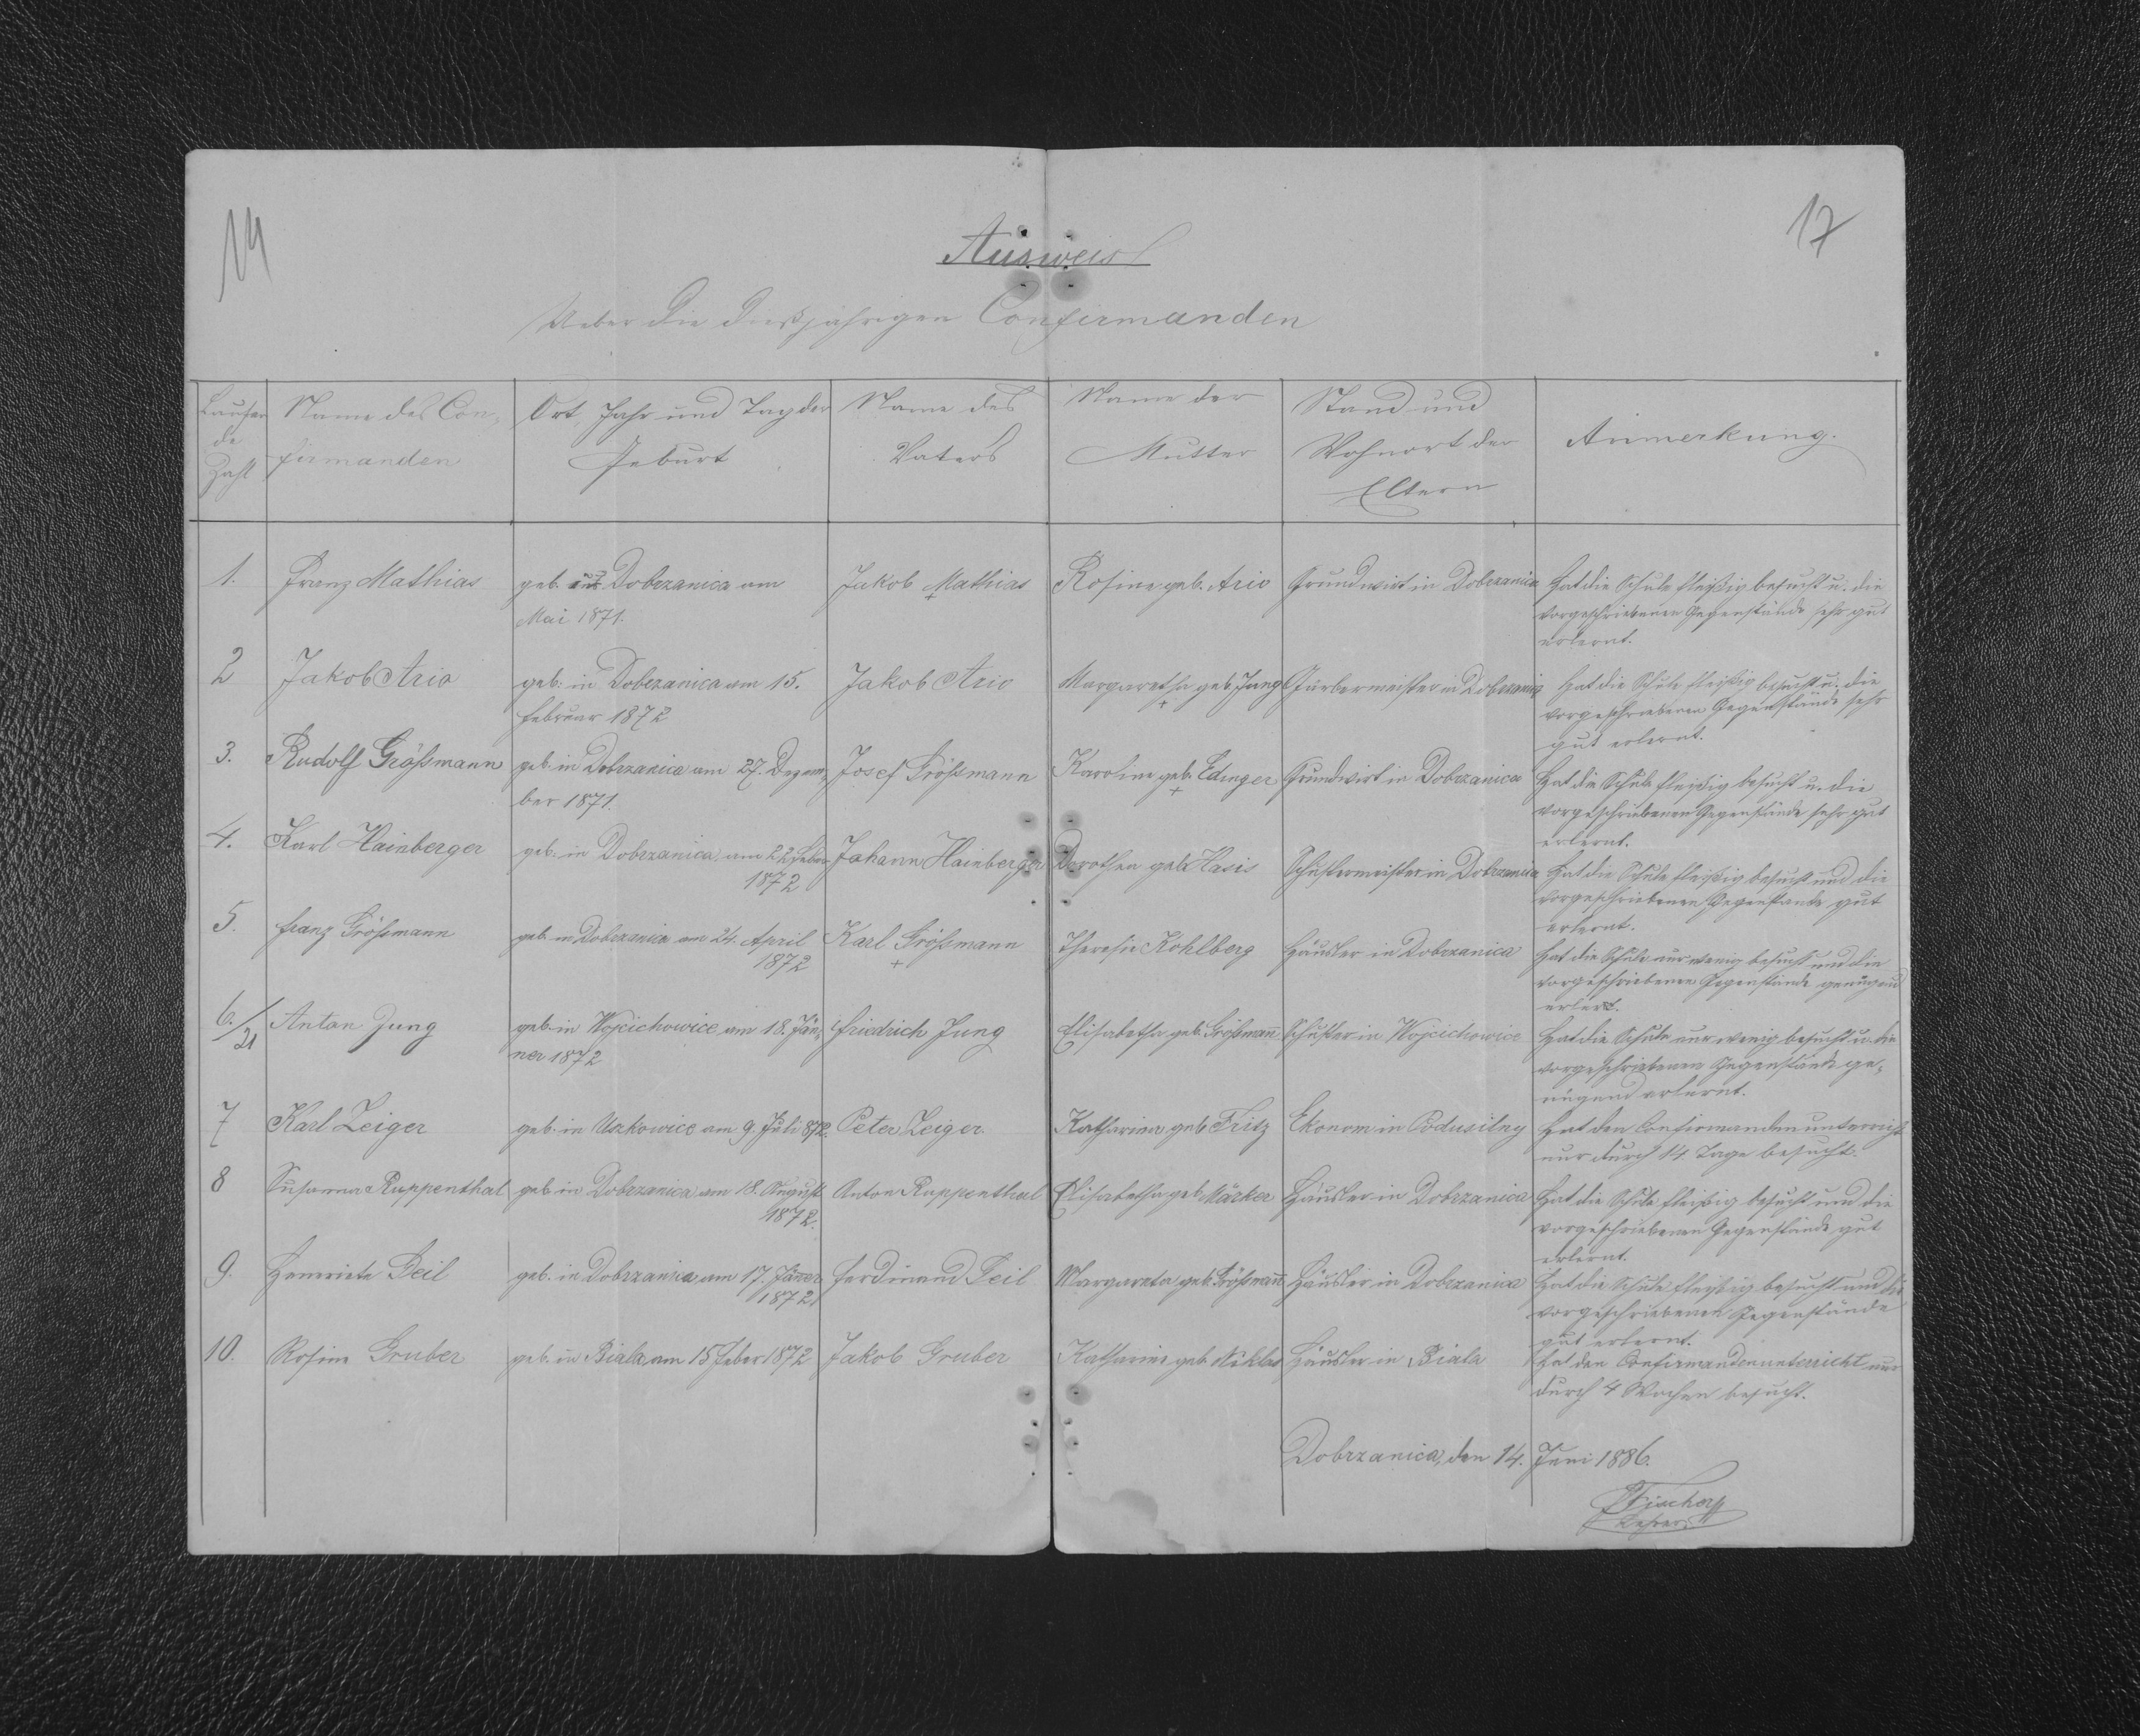 14
17
Ausweis
Ueber die dießjährigen Confirmanden
Laufen
de
Zahl
Name des Con-
firmanden
Ort, Jahr und Tag der
Geburt
Name des
Vaters
Name der
Mutter
Stand und
Wohnort der
Eltern
Anmerkung.
1. Franz Mathias geb. Dobrzanica am Jakob Mathias Rosina geb. Ario Grundwirt in Dobrzanica Hat die Schule fleißig besucht u. die
Mai 1871. + vorgeschriebenen Gegenstände sehr gut
erlernt.
2 Jakob Ario geb. in Dobrzanica am 15. Jakob Ario Margaretha geb. Jung in Dobrzanica Hat die Schule fleißig besucht u. die
Februar 1872 + vorgeschriebenen Gegenstände sehr
gut erlernt.
3. Rudolf Größmann geb. in Dobrzanica am 27. Dezem- Josef Größmann Karoline geb. Edinger Grundwirt in Dobrzanica Hat die Schule fleißig besucht u. die
ber 1871. + vorgeschriebenen Gegenstände sehr gut
erlernt.
4. Karl Hainberger geb. in Dobrzanica am 22 Feber Johann Hainberger Dorothea geb. Hasis Schustermeister in Dobrzanica Hat die Schule fleißig besucht und die
1872 vorgeschriebenen Gegenstände gut
erlernt.
5. Franz Größmann geb. in Dobrzanica am 24. April Karl Größmann Theresie Kohlberg Häusler in Dobrzanica Hat die Schule nur wenig besucht und die
1872 + vorgeschriebenen Gegenstände genügend
erlernt.
6./21 Anton Jung geb. in Wojcichowice am 18. Jän- Friedrich Jung Elisabetha geb. Größman Schuster in Wojcichowice Hat die Schule nur wenig besucht u. die
ner 1872 vorgeschriebenen Gegenstände ge-
nügend erlernt.
7 Karl Zeiger geb. in Uszkowice am 9. Juli 872. Peter Zeiger Katharina geb. Fritz Ekonom in Podusilny Hat den Confirmandenunterricht
nur durch 14 Tage besucht.
8 Susanna Ruppenthal geb. in Dobrzanica am 18. August Anton Ruppenthal Elisabetha geb. Märker Häusler in Dobrzanica Hat die Schule fleißig besucht und die
1872. vorgeschriebenen Gegenstände gut
erlernt.
9. Henriete Beil geb. in Dobrzanica am 17. Jänner Ferdinand Beil Margareta geb. Größmañ Häusler in Dobrzanica Hat die Schule fleißig besucht und die
1872 vorgeschriebenen Gegenstände
gut erlernt.
10. Rosina Gruber geb. in Biala am 15 Feber 1872 Jakob Gruber Katharina geb. Niklas Häusler in Biala Hat den Confirmandenunterricht nur
durch 4 Wochen besucht.
Dobrzanica, den 14. Juni 1886.
Fischer
Lehrer